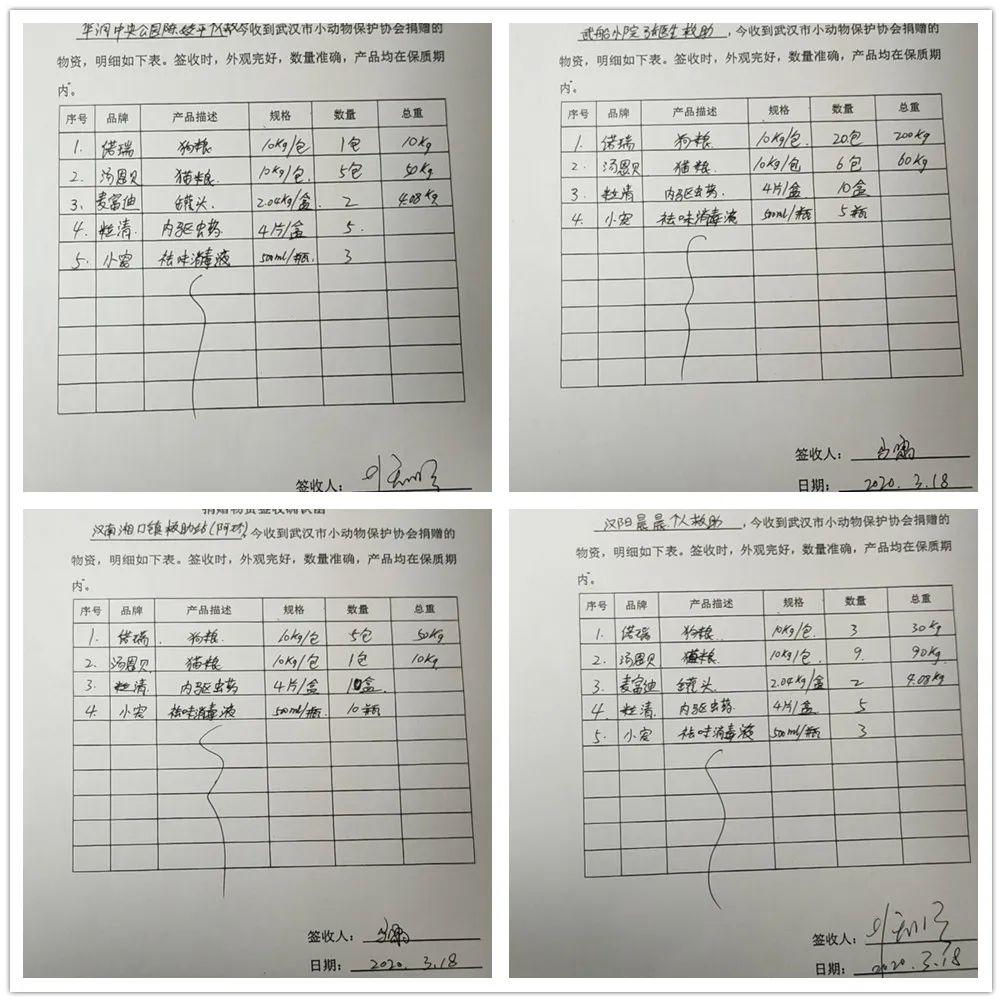 华润中央公园陈 平个救今收到武汉市小动物保护协会捐赠的
物资，明细如下表。签收时，外观完好，数量准确，产品均在保质期
内。
序号 品牌 产品描述 规格 数量 总重
1. 偌瑞 狗粮 10Kg/包 1包 10Kg
2. 汤恩贝 猫粮. 10Kg/包. 5包 50Kg
3. 麦富迪 罐头 2.04Kg/盒. 2 4.08Kg
4. 粒清. 内驱虫药 4片/盒 5.
5. 小宠 祛味消毒液 500ml/瓶. 3
签收人：
武船小院 医生救助，今收到武汉市小动物保护协会捐赠的
物资，明细如下表。签收时，外观完好，数量准确，产品均在保质期
内。
序号 品牌 产品描述 规格 数量 总重
1. 偌瑞 狗粮. 10Kg/包. 20包 200Kg
2. 汤恩贝 猫粮. 10Kg/包 6包 60Kg
3. 粒清 内驱虫药 4片/盒 10盒
4. 小宠 祛味消毒液 500ml/瓶 5瓶
签收人：
日期： 2020. 3.18
捐赠物资签收确认函
汉南湘口镇救助站(阿 )，今收到武汉市小动物保护协会捐赠的
物资，明细如下表。签收时，外观完好，数量准确，产品均在保质期
内。
序号 品牌 产品描述 规格 数量 总重
1. 偌瑞. 狗粮. 10Kg/包 5包 50Kg
2. 汤恩贝 猫粮 10Kg/包 1包 10Kg
3. 粒清 内驱虫药 4片/盒 10盒.
4. 小宠 祛味消毒液 500ml/瓶. 10瓶
签收人：
日期： 2020. 3.18
汉阳晨晨个人救助，今收到武汉市小动物保护协会捐赠的
物资，明细如下表。签收时，外观完好，数量准确，产品均在保质期
内。
序号 品牌 产品描述 规格 数量 总重
1. 偌瑞 狗粮. 10Kg/包. 3 30Kg
2. 汤恩贝 猫粮. 10Kg/包. 9. 90Kg.
3. 麦富迪 罐头 2.04Kg/盒 2 4.08Kg
4. 粒清. 内驱虫药. 4片/盒. 5
5. 小宠 祛味消毒液 500ml/瓶 3
签收人：
日期： 2020. 3.18